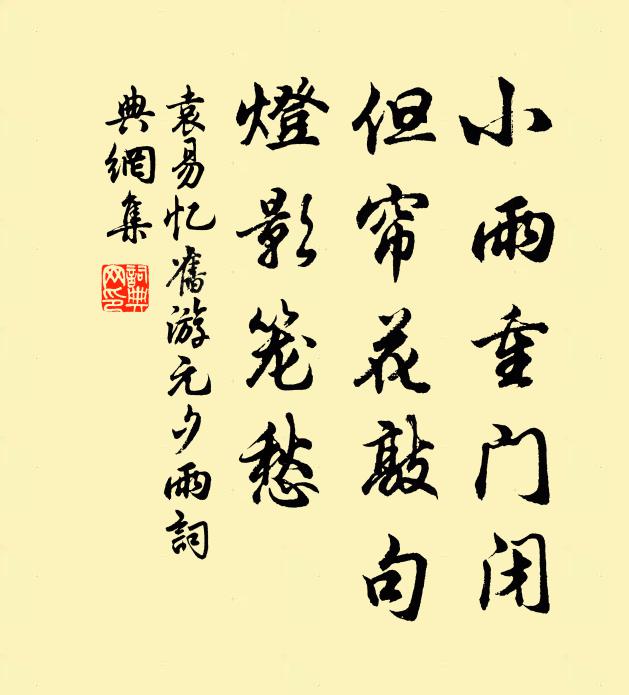 小雨重门闭
但帘花敲句
燈影笼愁
袁易忆舊游元夕雨詞
典網集
詞典网印